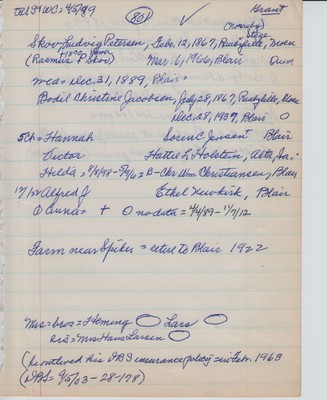 80
Grant
Skov-Ludvig Petersen, Febr. 12, 1867, Rudbylille, Moen
(Rasmus P Skov) Mar. 6, 1966, Blair Dum
mca= Dec. 31, 1889, Blair=
Bodil Christine Jacobsen, July 28, 1867, Rudbylille, Moen
Dec. 28, 1937, Blair O
5 Ch = Hannah Soren C Jensen + Blair
Victor Hattie L Holstein, Alta, Ia.
Hilda = B- Chr Wm Christiansen, Blair
Alfred J Ethel Newkirk, Blair
O Annie = + O no data = 4/4/89 - 11/7/12
Farm near Spiker = retire to Blair 1922
Mrs = bros = Fleming O Lars O
sis = Mrs Hans Larsen O
(he outlived his DBS insurance policy = in Febr. 1963
(DBS = 9/5/03 - 28-178)